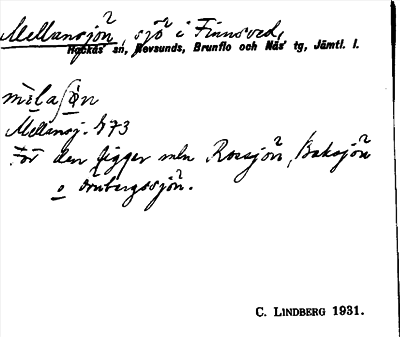 Mellansjön, sjö i Finnsved,
Hackås sn, Revsunds, Brunflo och Näs' tg, Jämtl. l.
Mellansj. 473
För den ligger mln Rossjön, Baksjön
o Örnbergssjön.
C. LINDBERG 1931.